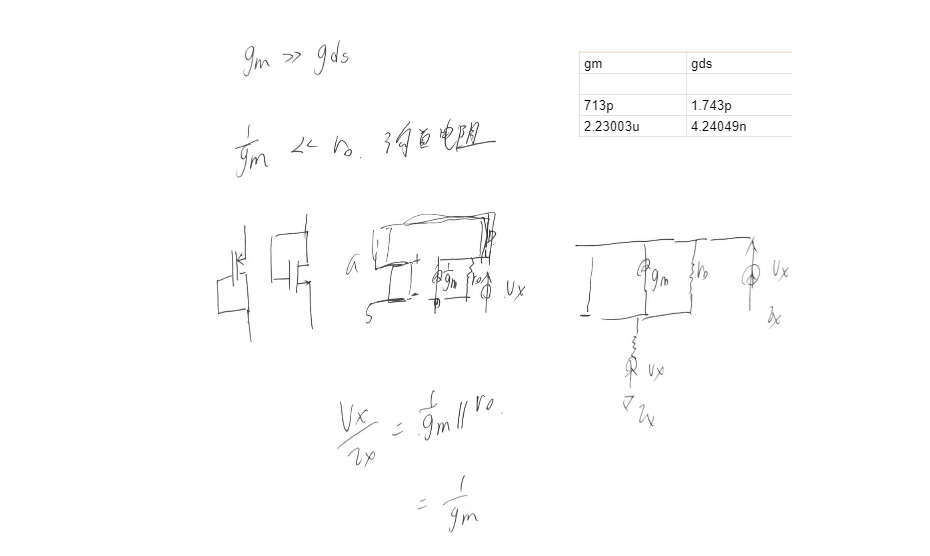 gm >> gds
gm gds
713p 1.743p
2.23003u 4.24049n
1/gm << ro. 沟道电阻
G
+
1/gm ro
-
S
Vx
gm ro Vx
Ix
Vx
Ix
Vx/Ix = 1/gm // ro.
= 1/gm